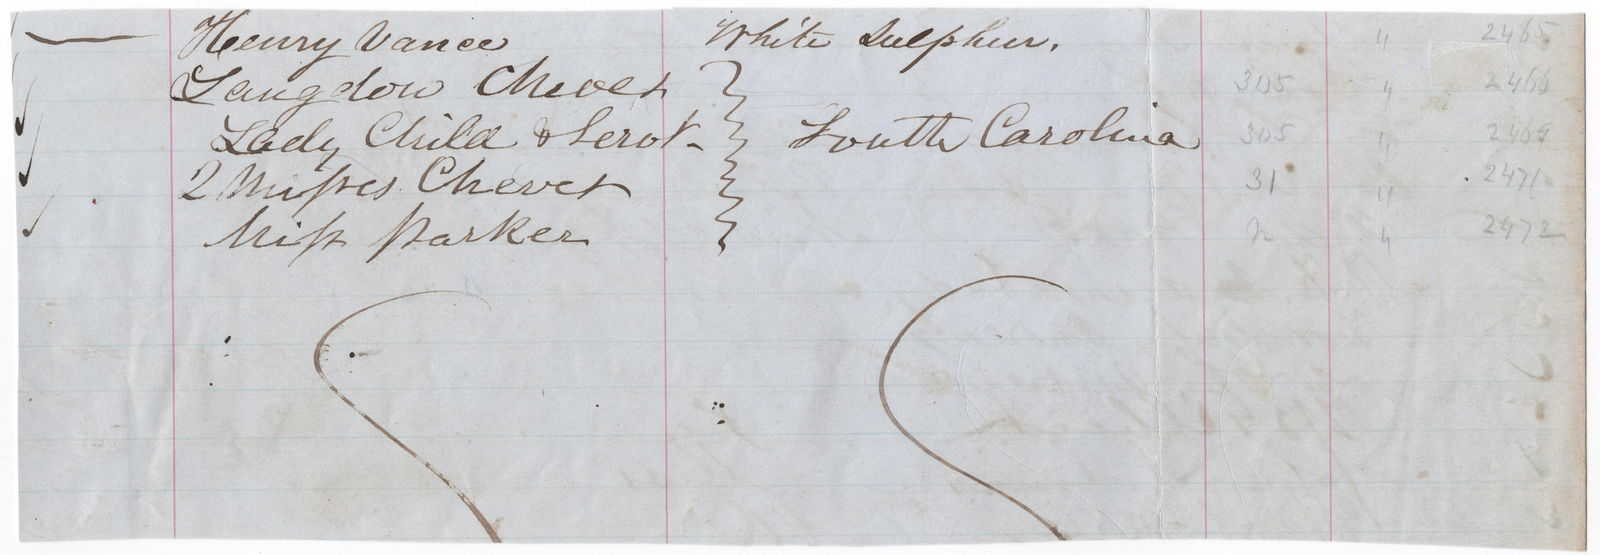 Henry Vance White Sulphur. " 2465
Langdon Cheves 305 " 2466
Lady Child & Servt- South Carolina 305 " 2469
2 Misses Cheves 31 " 2471
Miss Parker " 2472